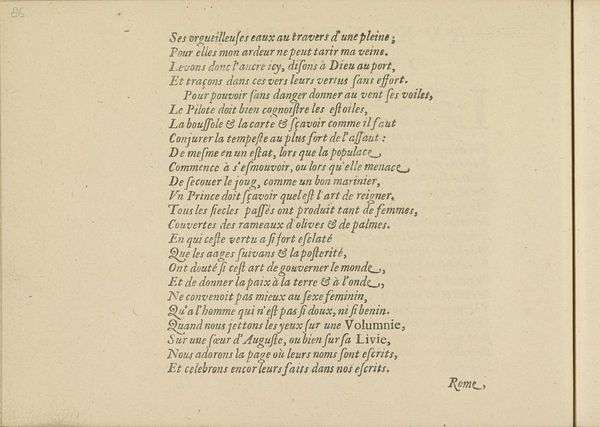 86
Ses orgueilleuſes eaux au travers d'une pleine;
Pour elles mon ardeur ne peut tarir ma veine.
Levons donc l'ancre icy, diſons à Dieu au port,
Et traçons dans ces vers leurs vertus ſans effort.
Pour pouvoir ſans danger donner au vent ſes voiles,
Le Pilote doit bien cognoiſtre les eſtoiles,
La bouſſole & la carte & ſçavoir comme il faut
Conjurer la tempeſte au plus fort de l'aſſaut:
De meſme en un eſtat, lors que la populace
Commence à s'eſmouvoir, ou lors qu'elle menace
De ſecouer le joug, comme un bon marinier,
Vn Prince doit ſçavoir quel eſt l'art de reigner.
Tous les ſiecles paſſés ont produit tant de femmes,
Couvertes des rameaux d'olives & de palmes.
En qui ceſte vertu a ſi fort eſclaté
Que les aages ſuivans & la poſterité,
Ont douté ſi ceſt art de gouverner le monde,
Et de donner la paix à la terre & à l'onde,
Ne convenoit pas mieux au ſexe feminin,
Qu'a l'homme qui n'eſt pas ſi doux, ni ſi benin.
Quand nous jettons les yeux ſur une Volumnie,
Sur une ſœur d'Auguſte, ou bien ſur ſa Livie,
Nous adorons la page où leurs noms ſont eſcrits,
Et celebrons encor leurs faits dans nos eſcrits.
Rome,